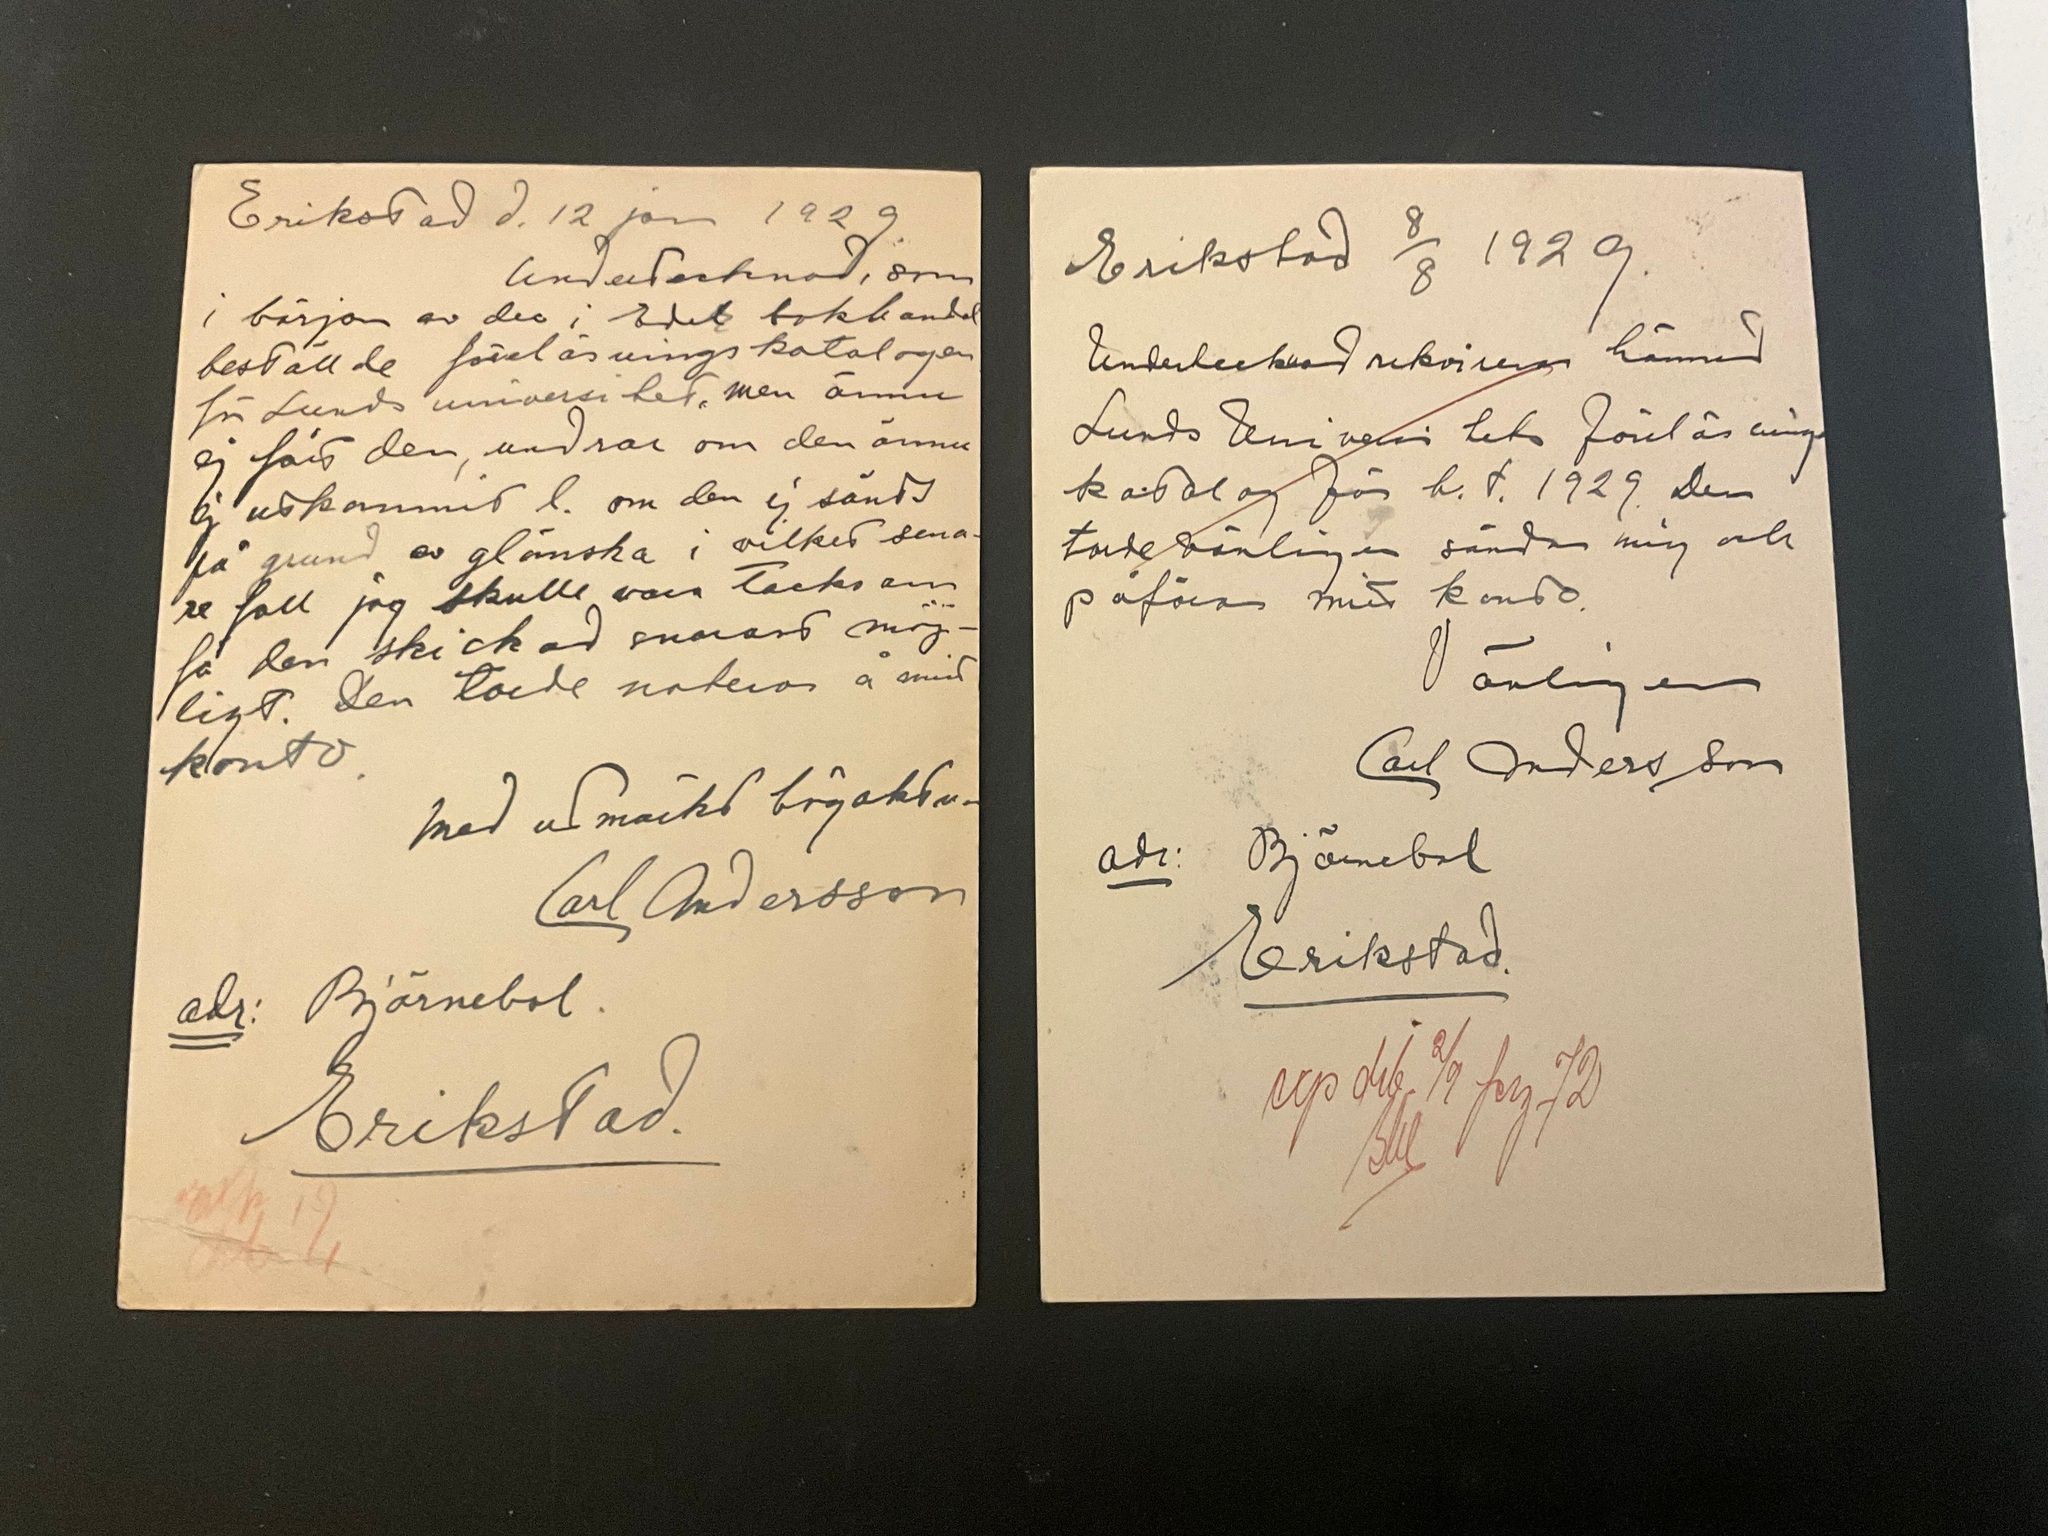 Erikstad d. 12 jan 1929.
Undertecknad, som
i början av dec i Edert bokhandel
beställde föreläsningskatalogen
för Lunds universitet, men ännu
ej fått den, undrar om den ännu
ej utkommit l. om den ej sänts
på grund av glömska i vilket sena-
re fall jag skulle vara tacksam
få den skickad snarast möj-
ligt. Den torde noteras å mitt
konto.
Med utmärkt högaktn-
Carl Andersson
adr: Björnebol.
Erikstad.
Erikstad 8/8 1929.
Undertecknad rekvirerar härmed
Lunds Universitets föreläsnings
katalog för h.t. 1929. Den
torde vänligen sändas mig och
påföras mitt konto.
Vänligen
Carl Andersson
adr: Björnebol
Erikstad.